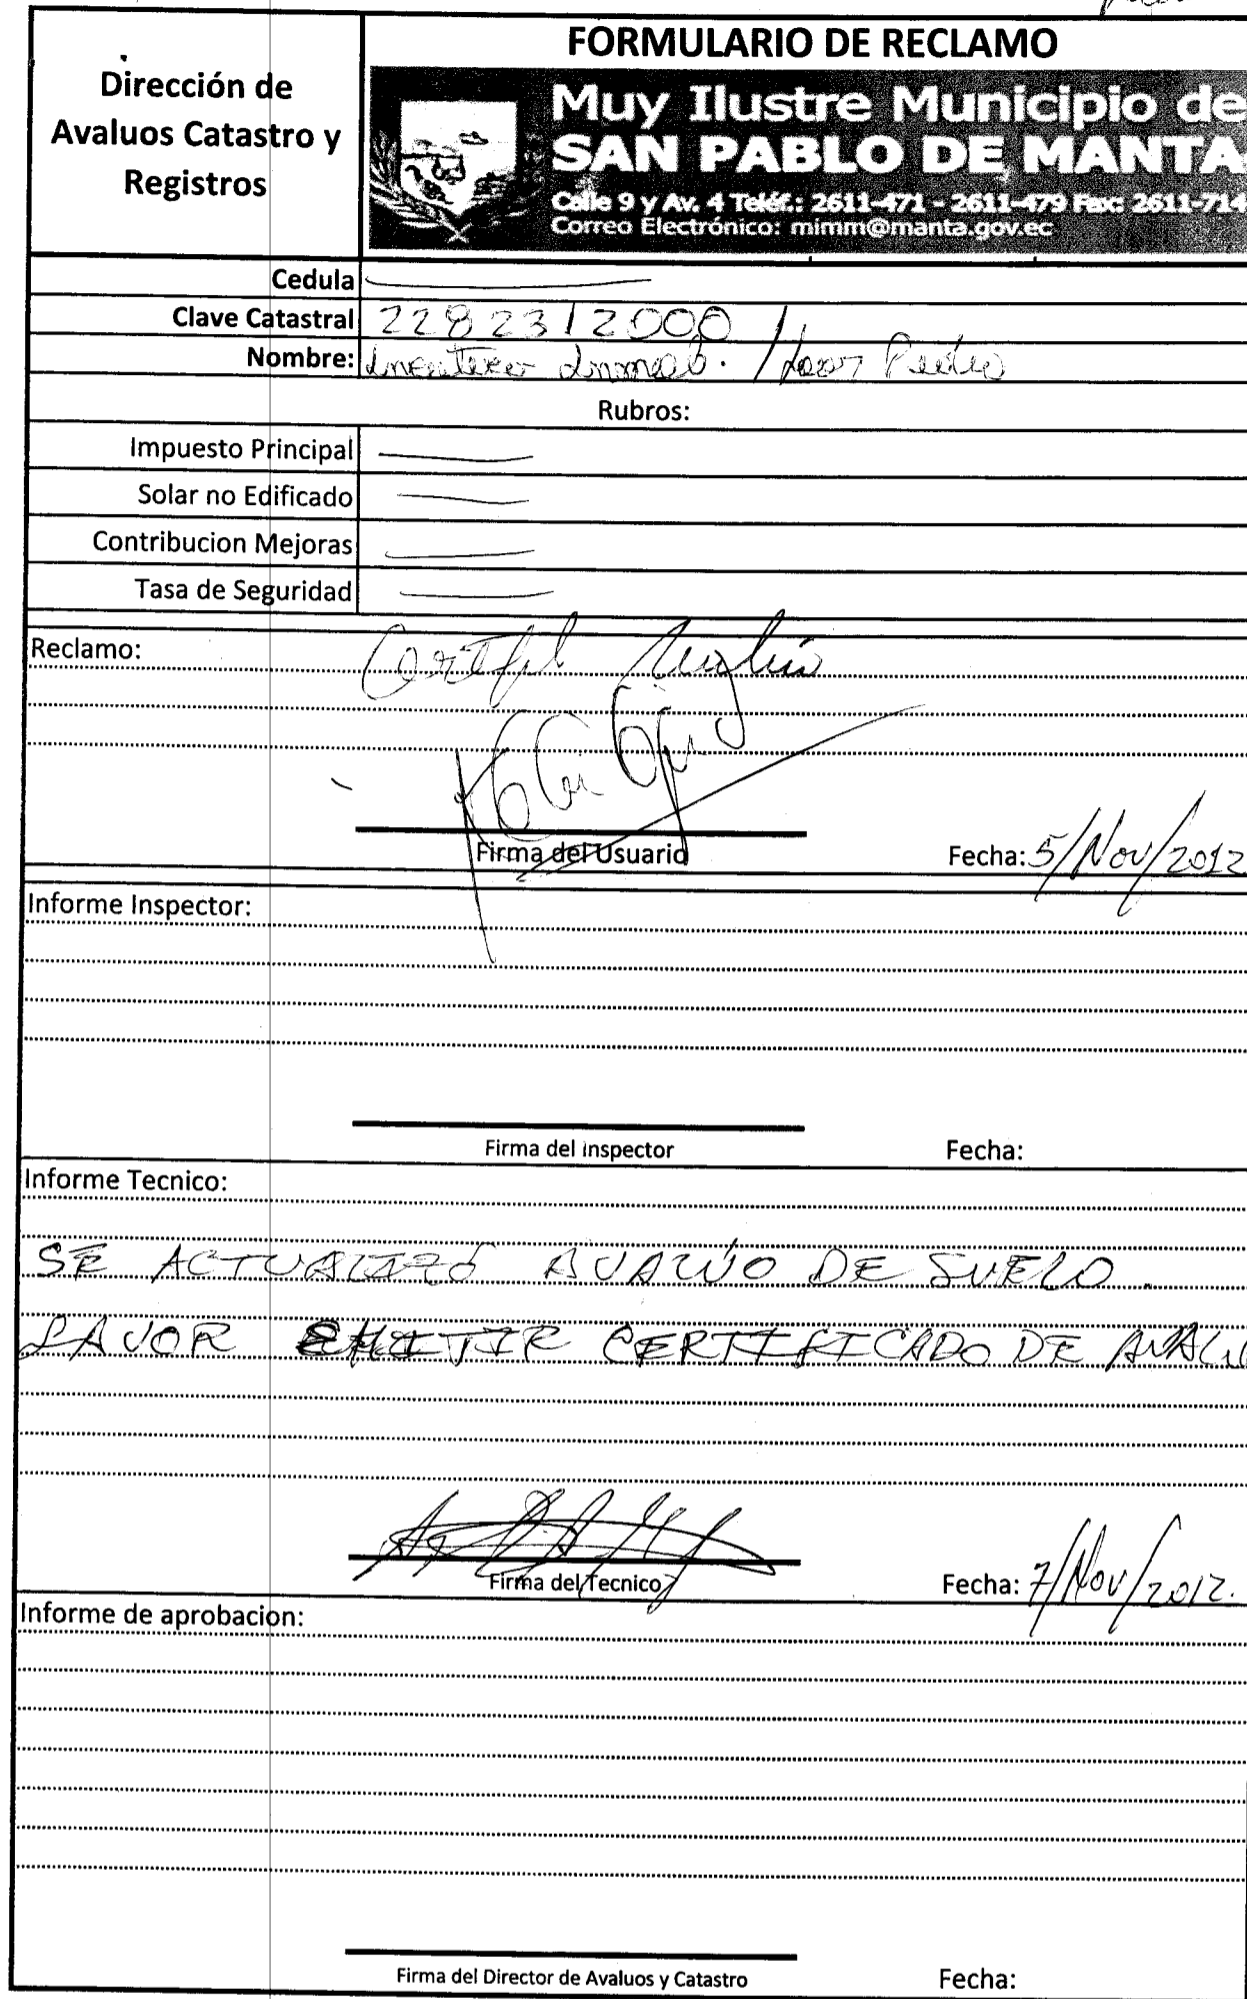 FORMULARIO DE RECLAMO
Dirección de
Avaluos Catastro y
Registros
Muy Ilustre Municipio de
SAN PABLO DE MANTA
Calle 9 y Av. 4 Teléf.: 2611-471 - 2611-479 Fax: 2611-714
Correo Electrónico: mimm@manta.gov.ec
Cedula
Clave Catastral 2282312000
Nombre:
Rubros:
Impuesto Principal
Solar no Edificado
Contribucion Mejoras
Tasa de Seguridad
Reclamo:
Firma del Usuario
Fecha: 5/Nov/2012
Informe Inspector:
Firma del Inspector
Fecha:
Informe Tecnico:
SE ACTUALIZÓ AVALÚO DE SUELO.
FAVOR EMITIR CERTIFICADO DE
Firma del Tecnico
Fecha: 7/Nov/2012.
Informe de aprobacion:
Firma del Director de Avaluos y Catastro
Fecha: